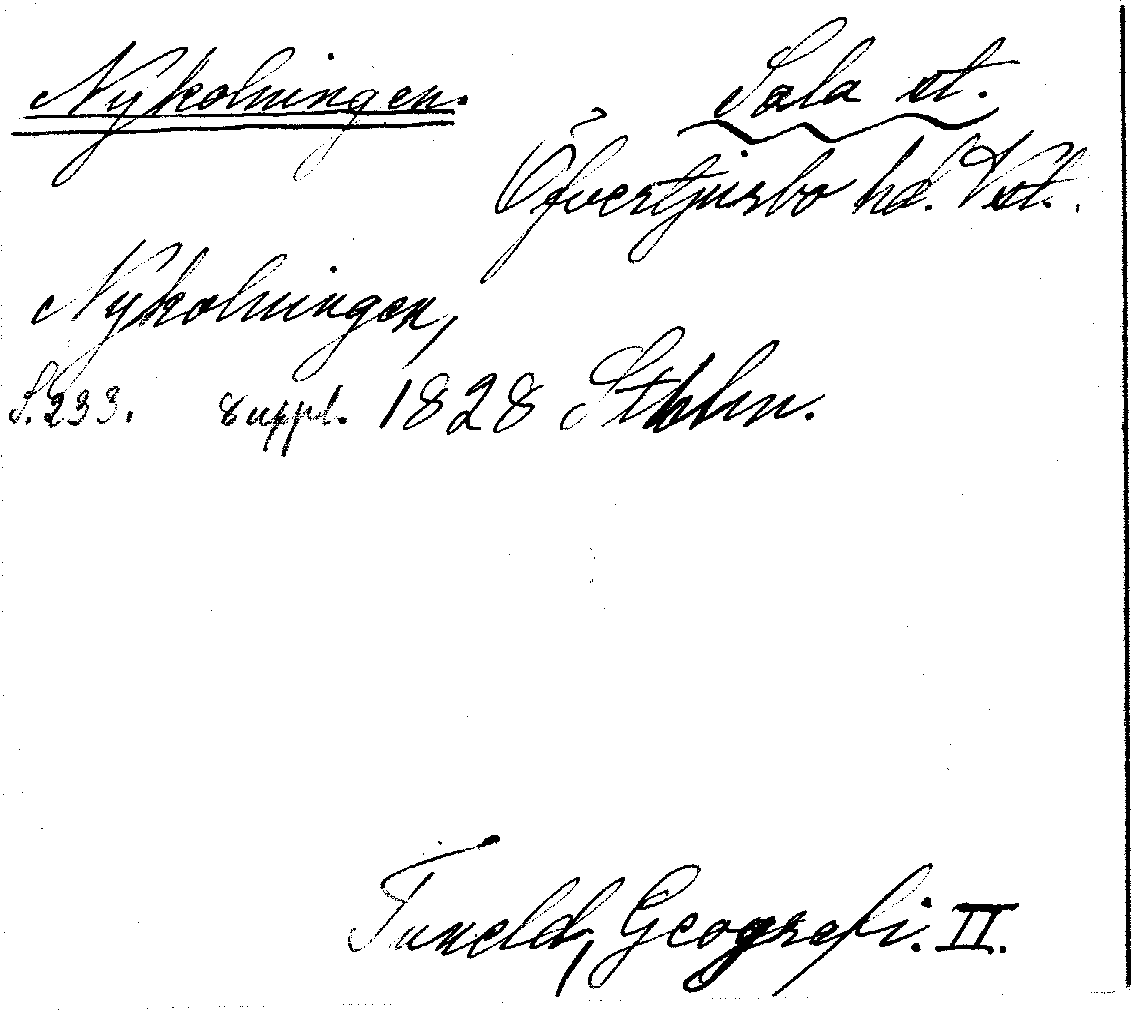 Nykolningen. Sala st.
Öfvertjurbo hd. Vstl.
Nykolningen,
S. 233. suppl. 1828 Sthlm.
Tuneld, Geografi. II.